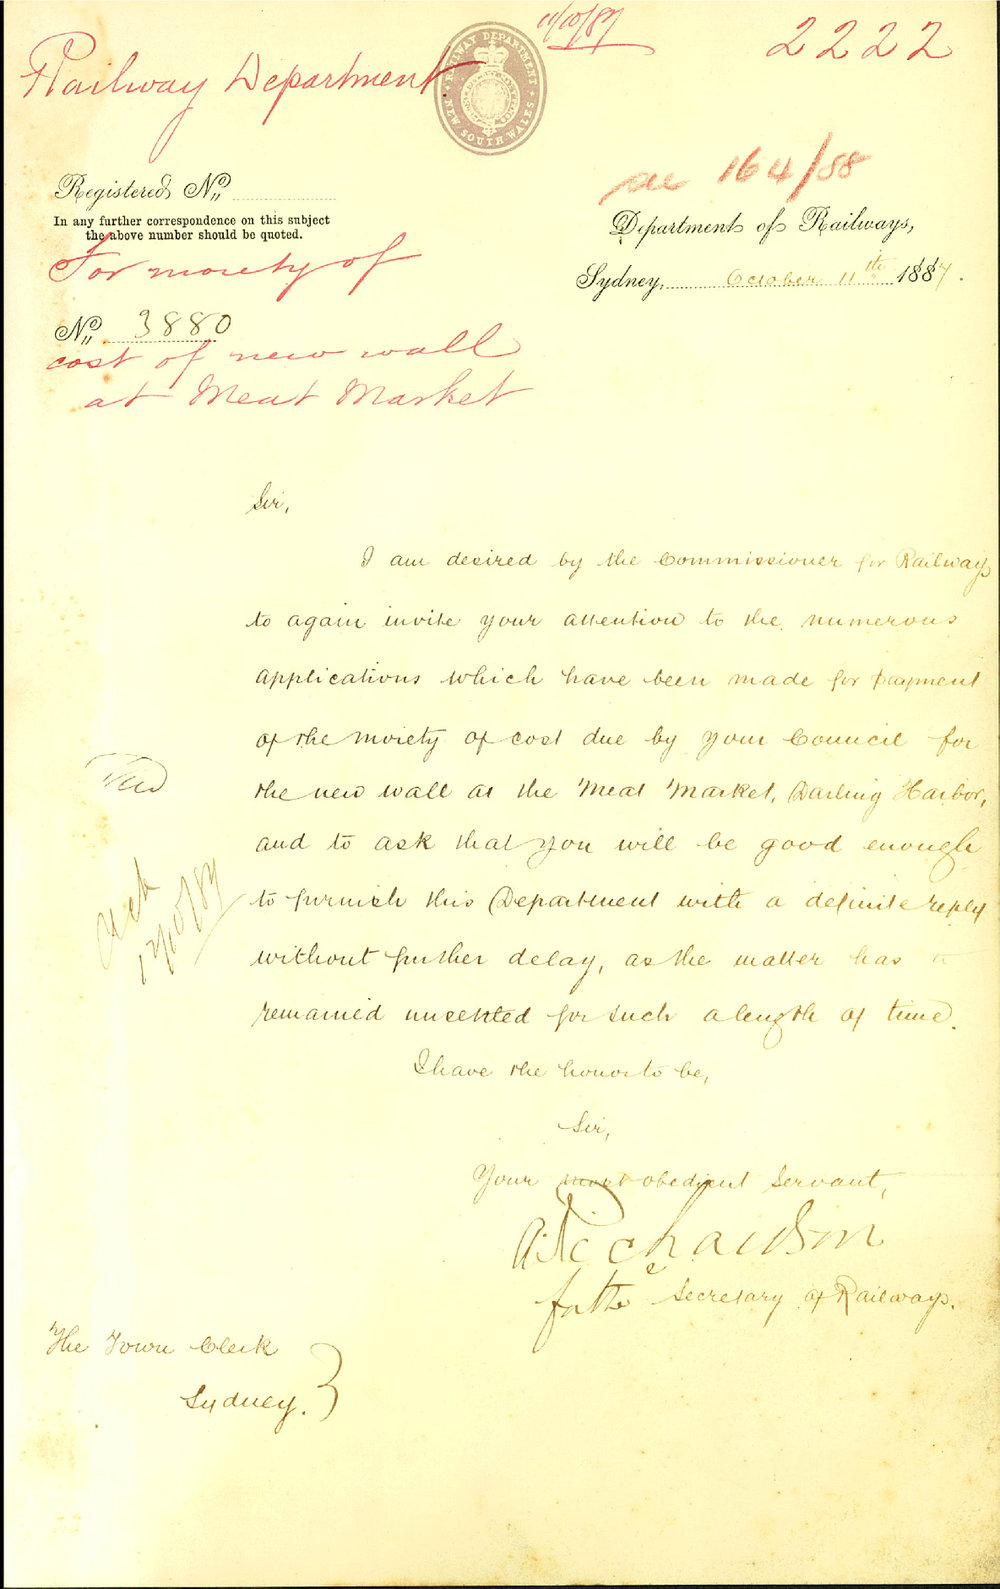 11/10/87
2222
Railway Department
RAILWAY DEPARTMENT
NEW SOUTH WALES
164/88
Registered No.
In any further correspondence on this subject
the above number should be quoted.
Department of Railways,
Sydney, October 11th 1887.
For moiety of
No. 3880
cost of new wall
at Meat Market
Sir,
I am desired by the Commissioner for Railways
to again invite your attention to the numerous
applications which have been made for payment
of the moiety of cost due by your Council for
the new wall at the Meat Market, Darling Harbor,
and to ask that you will be good enough
to furnish this Department with a definite reply
without further delay, as the matter has
remained unsettled for such a length of time.
Ack
12/10/87
I have the honor to be,
Sir,
Your most obedient Servant,
A Richardson
for the Secretary of Railways.
The Town Clerk
Sydney.